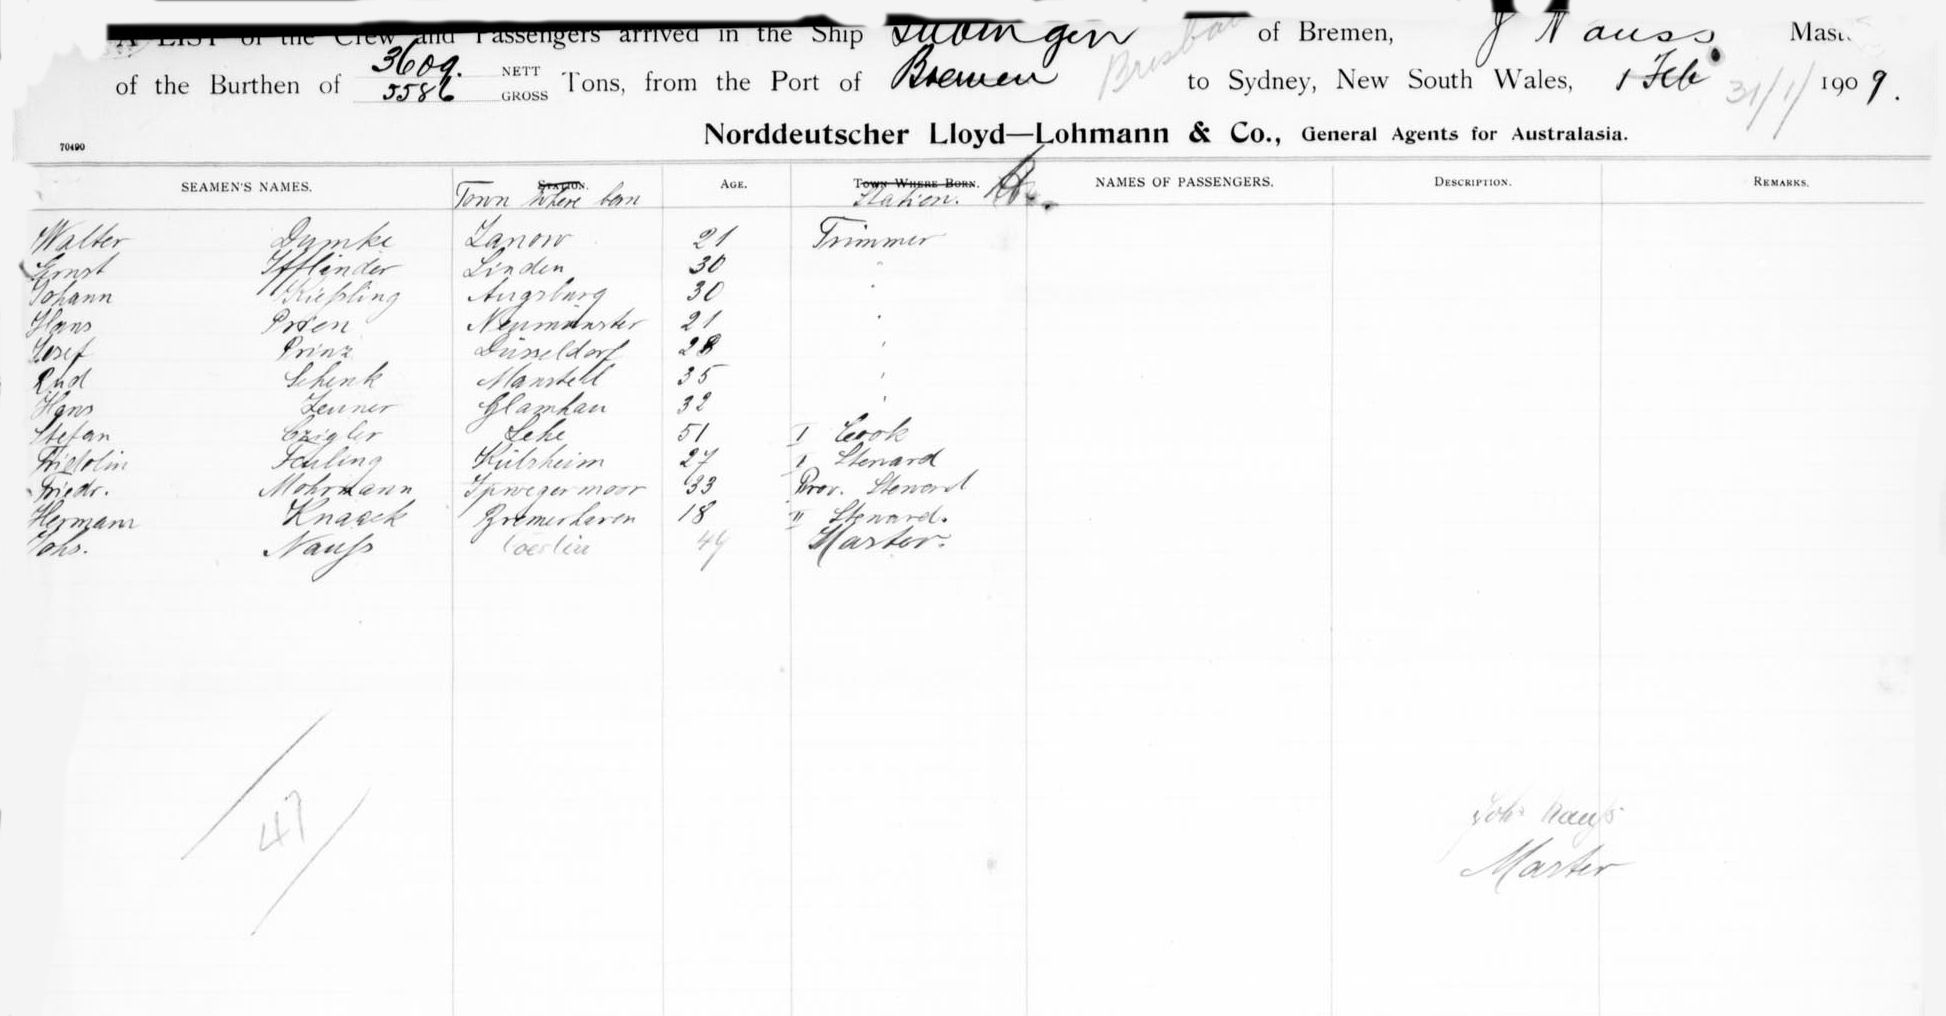 A LIST of the Crew and Passengers arrived in the Ship Tübingen of Bremen, J Nauss Mast
of the Burthen of 3609. NETT 5586 GROSS Tons, from the Port of Bremen Brisbane to Sydney, New South Wales, 1 Feb 31/1/ 1909.
Norddeutscher Lloyd—Lohmann & Co., General Agents for Australasia.
70490
SEAMEN'S NAMES. STATION. Town Where born AGE. TOWN WHERE BORN. Station. NAMES OF PASSENGERS. DESCRIPTION. REMARKS.
Walter Dumke Zanow 21 Trimmer
Ernst Iffländer Linden 30 "
Johann Kießling Augsburg 30 "
Hans Prien Neumünster 21 "
Josef Prinz Düsseldorf 28 "
Rud Schenk 35 "
Hans Zeuner Glauchau 32 "
Stefan Czigler Lehe 51 I Cook
Fridolin Külsheim 27 I Steward
Friedr. Mohrmann Ipwegermoor 33 Prov. Steward
Hermann Knaack Bremerhaven 18 II Steward.
Johs. Nauß Coeslin 44 Master.
47
Johs Nauß
Master